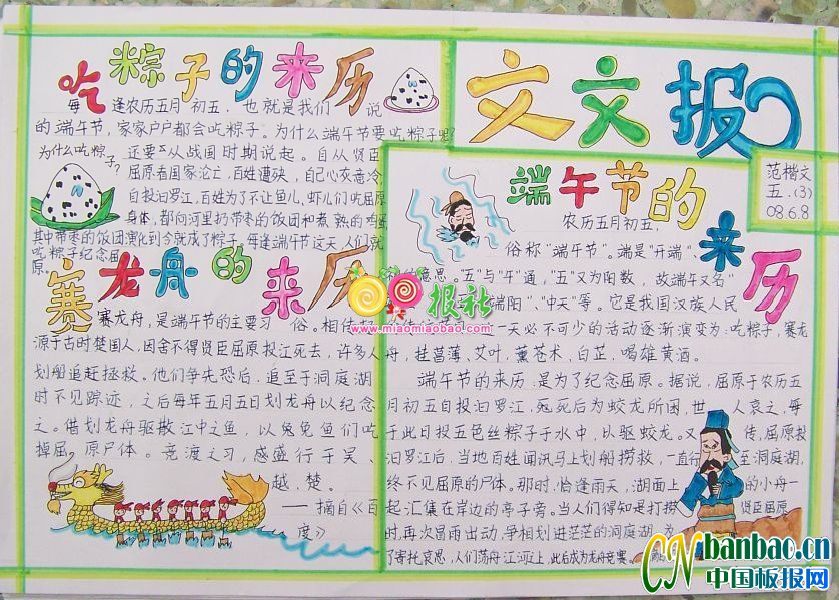 文文报
范楷文
五.(3)
08.6.8
吃粽子的来历
每逢农历五月初五,也就是我们说
的端午节,家家户户都会吃粽子。为什么端午节要吃粽子呢?
为什么吃粽子?
还要从战国时期说起。自从贤臣
屈原看国家沦亡,百姓遭殃,自己心灰意冷,
自投汨罗江,百姓为了不让鱼儿、虾儿们吃屈原
身体,都向河里扔带枣的饭团和煮熟的鸡蛋
其中带枣的饭团演化到今就成了粽子,每逢端午节这天,人们就
吃粽子纪念屈
原。
赛龙舟的来历
赛龙舟,是端午节的主要习俗。相传起
源于古时楚国人,因舍不得贤臣屈原投江死去,许多人
划船追赶拯救。他们争先恐后,追至于洞庭湖
时不见踪迹,之后每年五月五日划龙舟以纪念
之。借划龙舟驱散江中之鱼,以免鱼们吃
掉屈原尸体。竞渡之习,感盛行于吴、
越、楚。
——摘自《百
度》
端午节的来历
农历五月初五,
俗称“端午节”。端是“开端”、
的意思。“五”与“午”通,“五”又为阳数,故端午又名“
端阳”、“中天”等。它是我国汉族人民
一天必不可少的活动逐渐演变为:吃粽子,赛龙
舟,挂菖薄、艾叶,薰苍术,白芷,喝雄黄酒。
端午节的来历,是为了纪念屈原。据说,屈原于农历五
月初五自投汨罗江,死死后为蛟龙所困,世人哀之,每
于此日投五色丝粽子于水中,以驱蛟龙。又传,屈原投
汨罗江后,当地百姓闻讯马上划船捞救,一直行至洞庭湖,
终不见屈原的尸体。那时,恰逢雨天,湖面上的小舟一
起汇集在岸边的亭子旁。当人们得知是打捞贤臣屈原
时,再次冒雨出动,争相划进茫茫的洞庭湖。为
了寄托哀思,人们荡舟江河上,此后成为龙舟竞赛。
报社
www.miaomiaobao.com
CNbanbao.cn
中国板报网